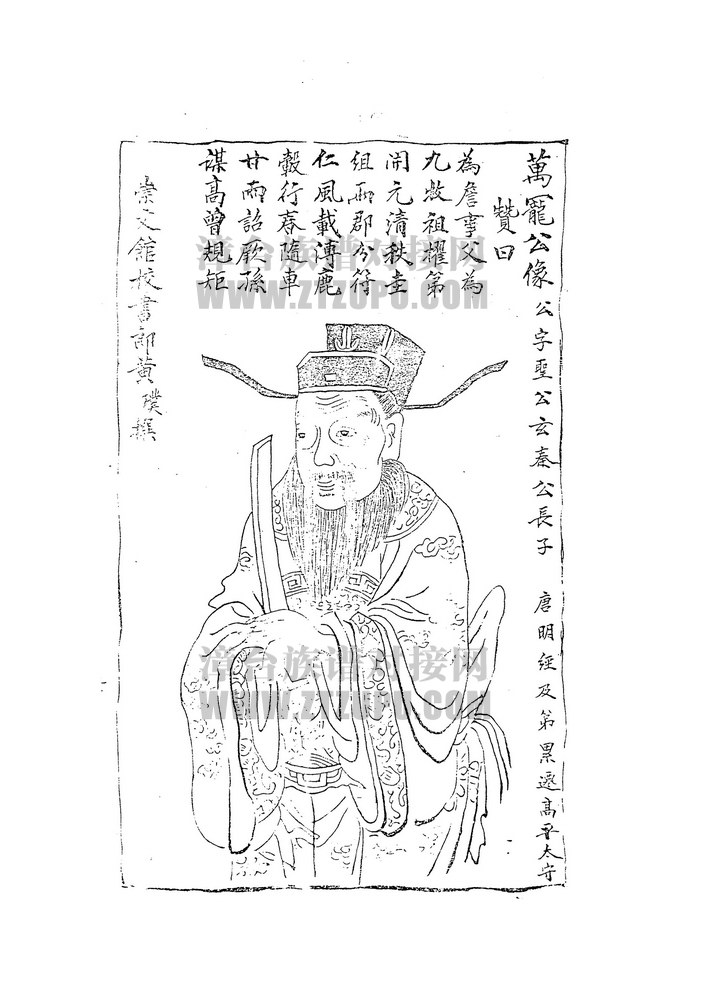 萬寵公像 公字聖公玄泰公長子 唐明經及第累遷高平太守
贊曰
為詹事父為
九牧祖擢第
開元清秩圭
組兩郡分符
仁風載溥鹿
轂行春隨車
甘雨詒厥孫
謀高曾規矩
崇文館校書郎黃璞撰
漳台族谱对接网
WWW.ZTZUPU.COM
漳台族谱对接网
WWW.ZTZUPU.COM